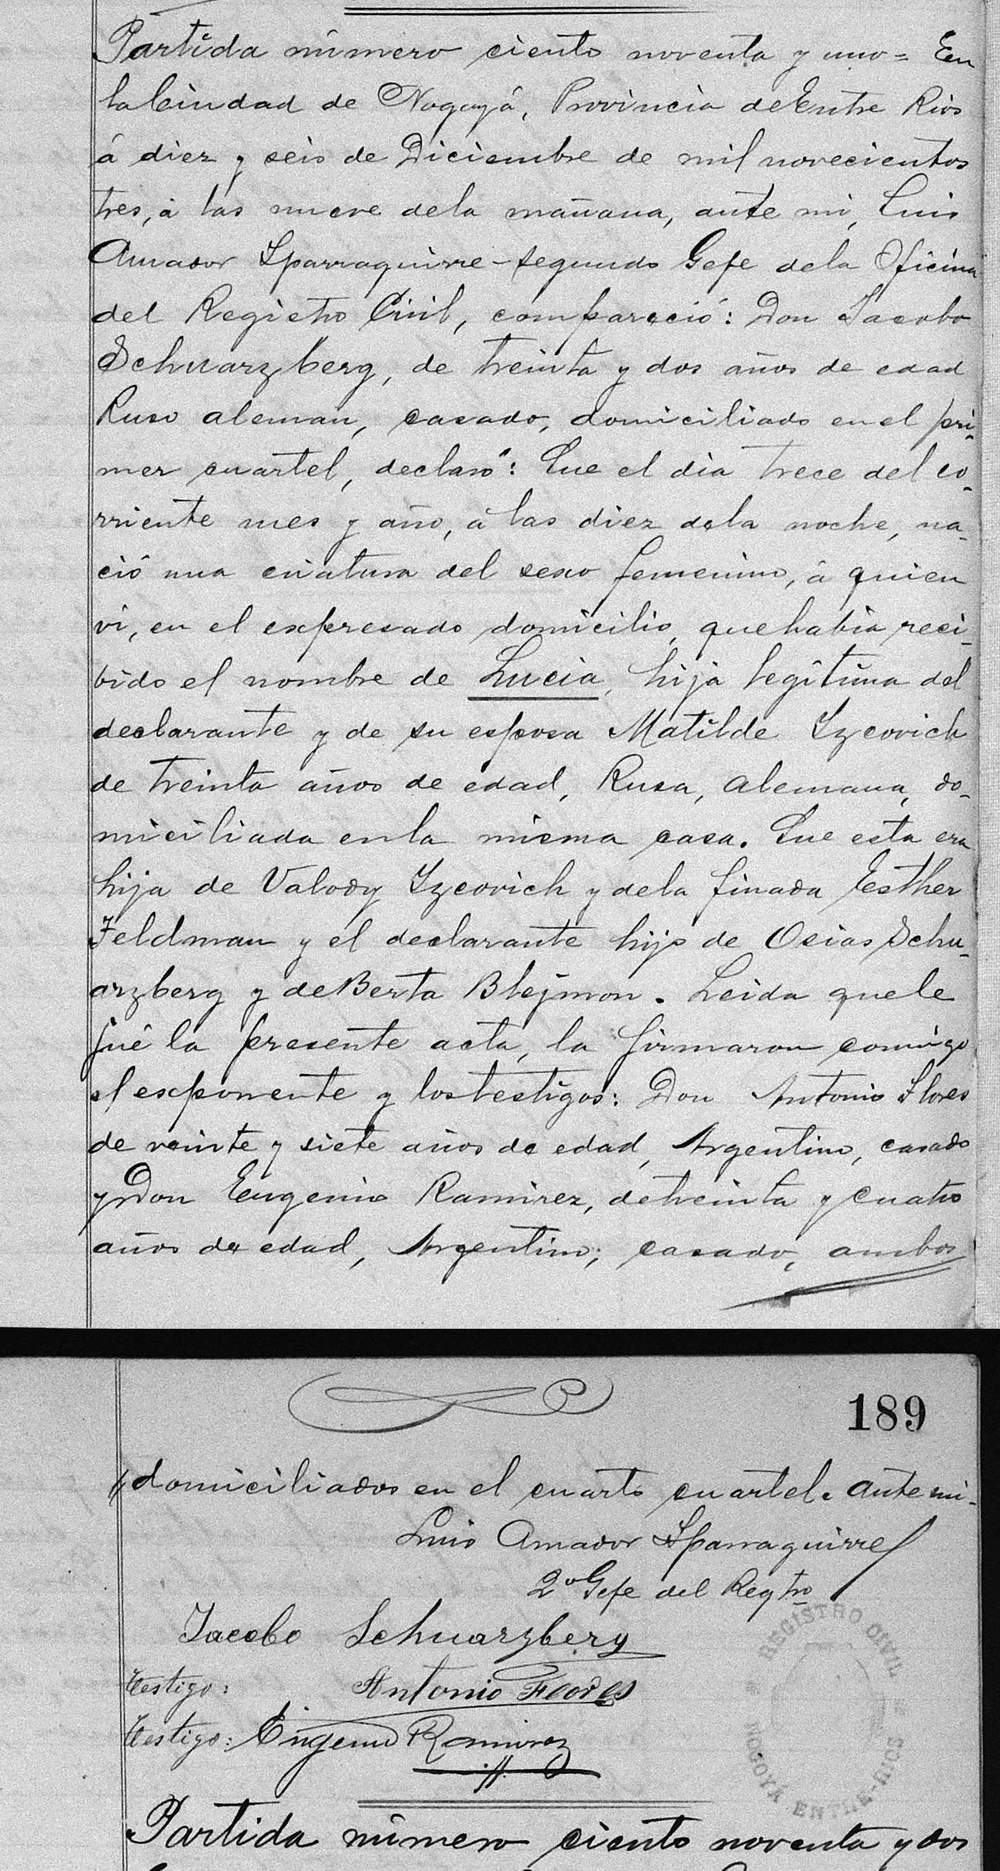 Partida número ciento noventa y uno = En
la Ciudad de Nogoyá, Provincia de Entre Rios
á diez y seis de Diciembre de mil novecientos
tres, á las nueve dela mañana, ante mi, Luis
Amador Yparraguirre - segundo Gefe dela Oficina
del Registro Civil, compareció: Don Jacobo
Schuarzberg, de treinta y dos años de edad
Ruso aleman, casado, domiciliado en el pri-
mer cuartel, declaró: Que el dia trece del co-
rriente mes y año, á las diez dela noche, na-
ció una criatura del sexo femenino, á quien
vi, en el expresado domicilio, que habia reci-
bido el nombre de Lucia, hija legitima del
declarante y de su esposa Matilde Yzcovich
de treinta años de edad, Rusa, alemana, do-
miciliada en la misma casa. Que esta era
hija de Valody Yzcovich y dela finada Esther
Feldman y el declarante hijo de Osias Schu-
arzberg y de Berta Blejmon. Leida que le
fué la presente acta, la firmaron comigo
el exponente y los testigos: Don Antonio Flores
de veinte y siete años de edad, Argentino, casado
y Don Eugenio Ramirez, de treinta y cuatro
años de edad, Argentino; casado, ambos
189
domiciliados en el cuarto cuartel. Ante mi-
Luis Amador Yparraguirre
2º Gefe del Regtro
Jacobo Schuarzberg
Testigo: Antonio Flores
Testigo: Eugenio Ramirez
REGISTRO CIVIL
NOGOYÁ ENTRE-RIOS
Partida número ciento noventa y dos